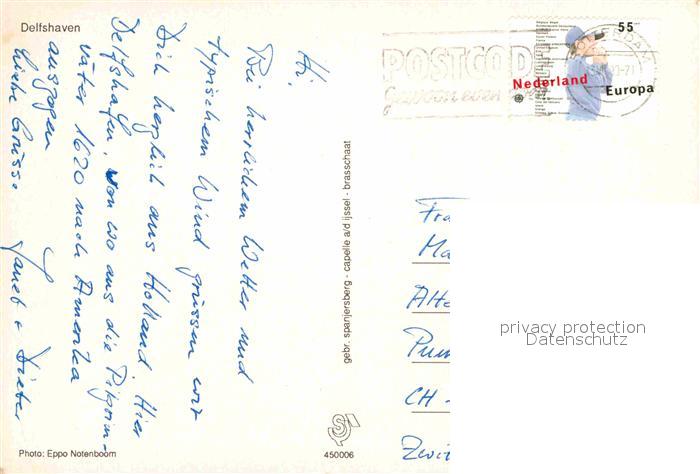 Delfshaven
Hi,
Bei herrlichem Wetter und
typischem Wind grüssen wir
Dich herzlich aus Holland. Hier
Delfshafen, von wo aus die Pilgrim-
väter 1620 nach Amerika
auszogen
Liebe Grüsse
Janet + Dieter
Photo: Eppo Notenboom
450006
gebr. spanjersberg - capelle a/d ijssel - brasschaat
POSTCODE
gewoon even
55
Nederland
Europa
Fra
Ma
Alte
CH -
privacy protection
Datenschutz